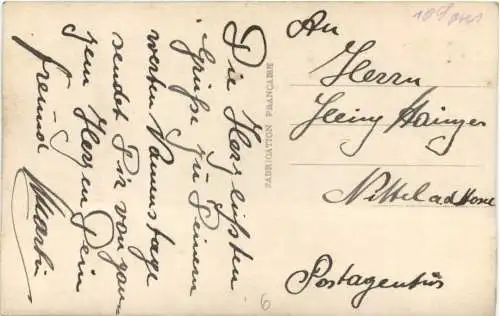 Die Herzlichsten
Grüße zu Deinem
werten Namenstage
sendet Dir von gan-
zem Herzen Dein
Freund
Martin
FABRICATION FRANÇAISE
An
Herrn
Heinz Hainzer
Nittel a d Mosel
Postagentur
6